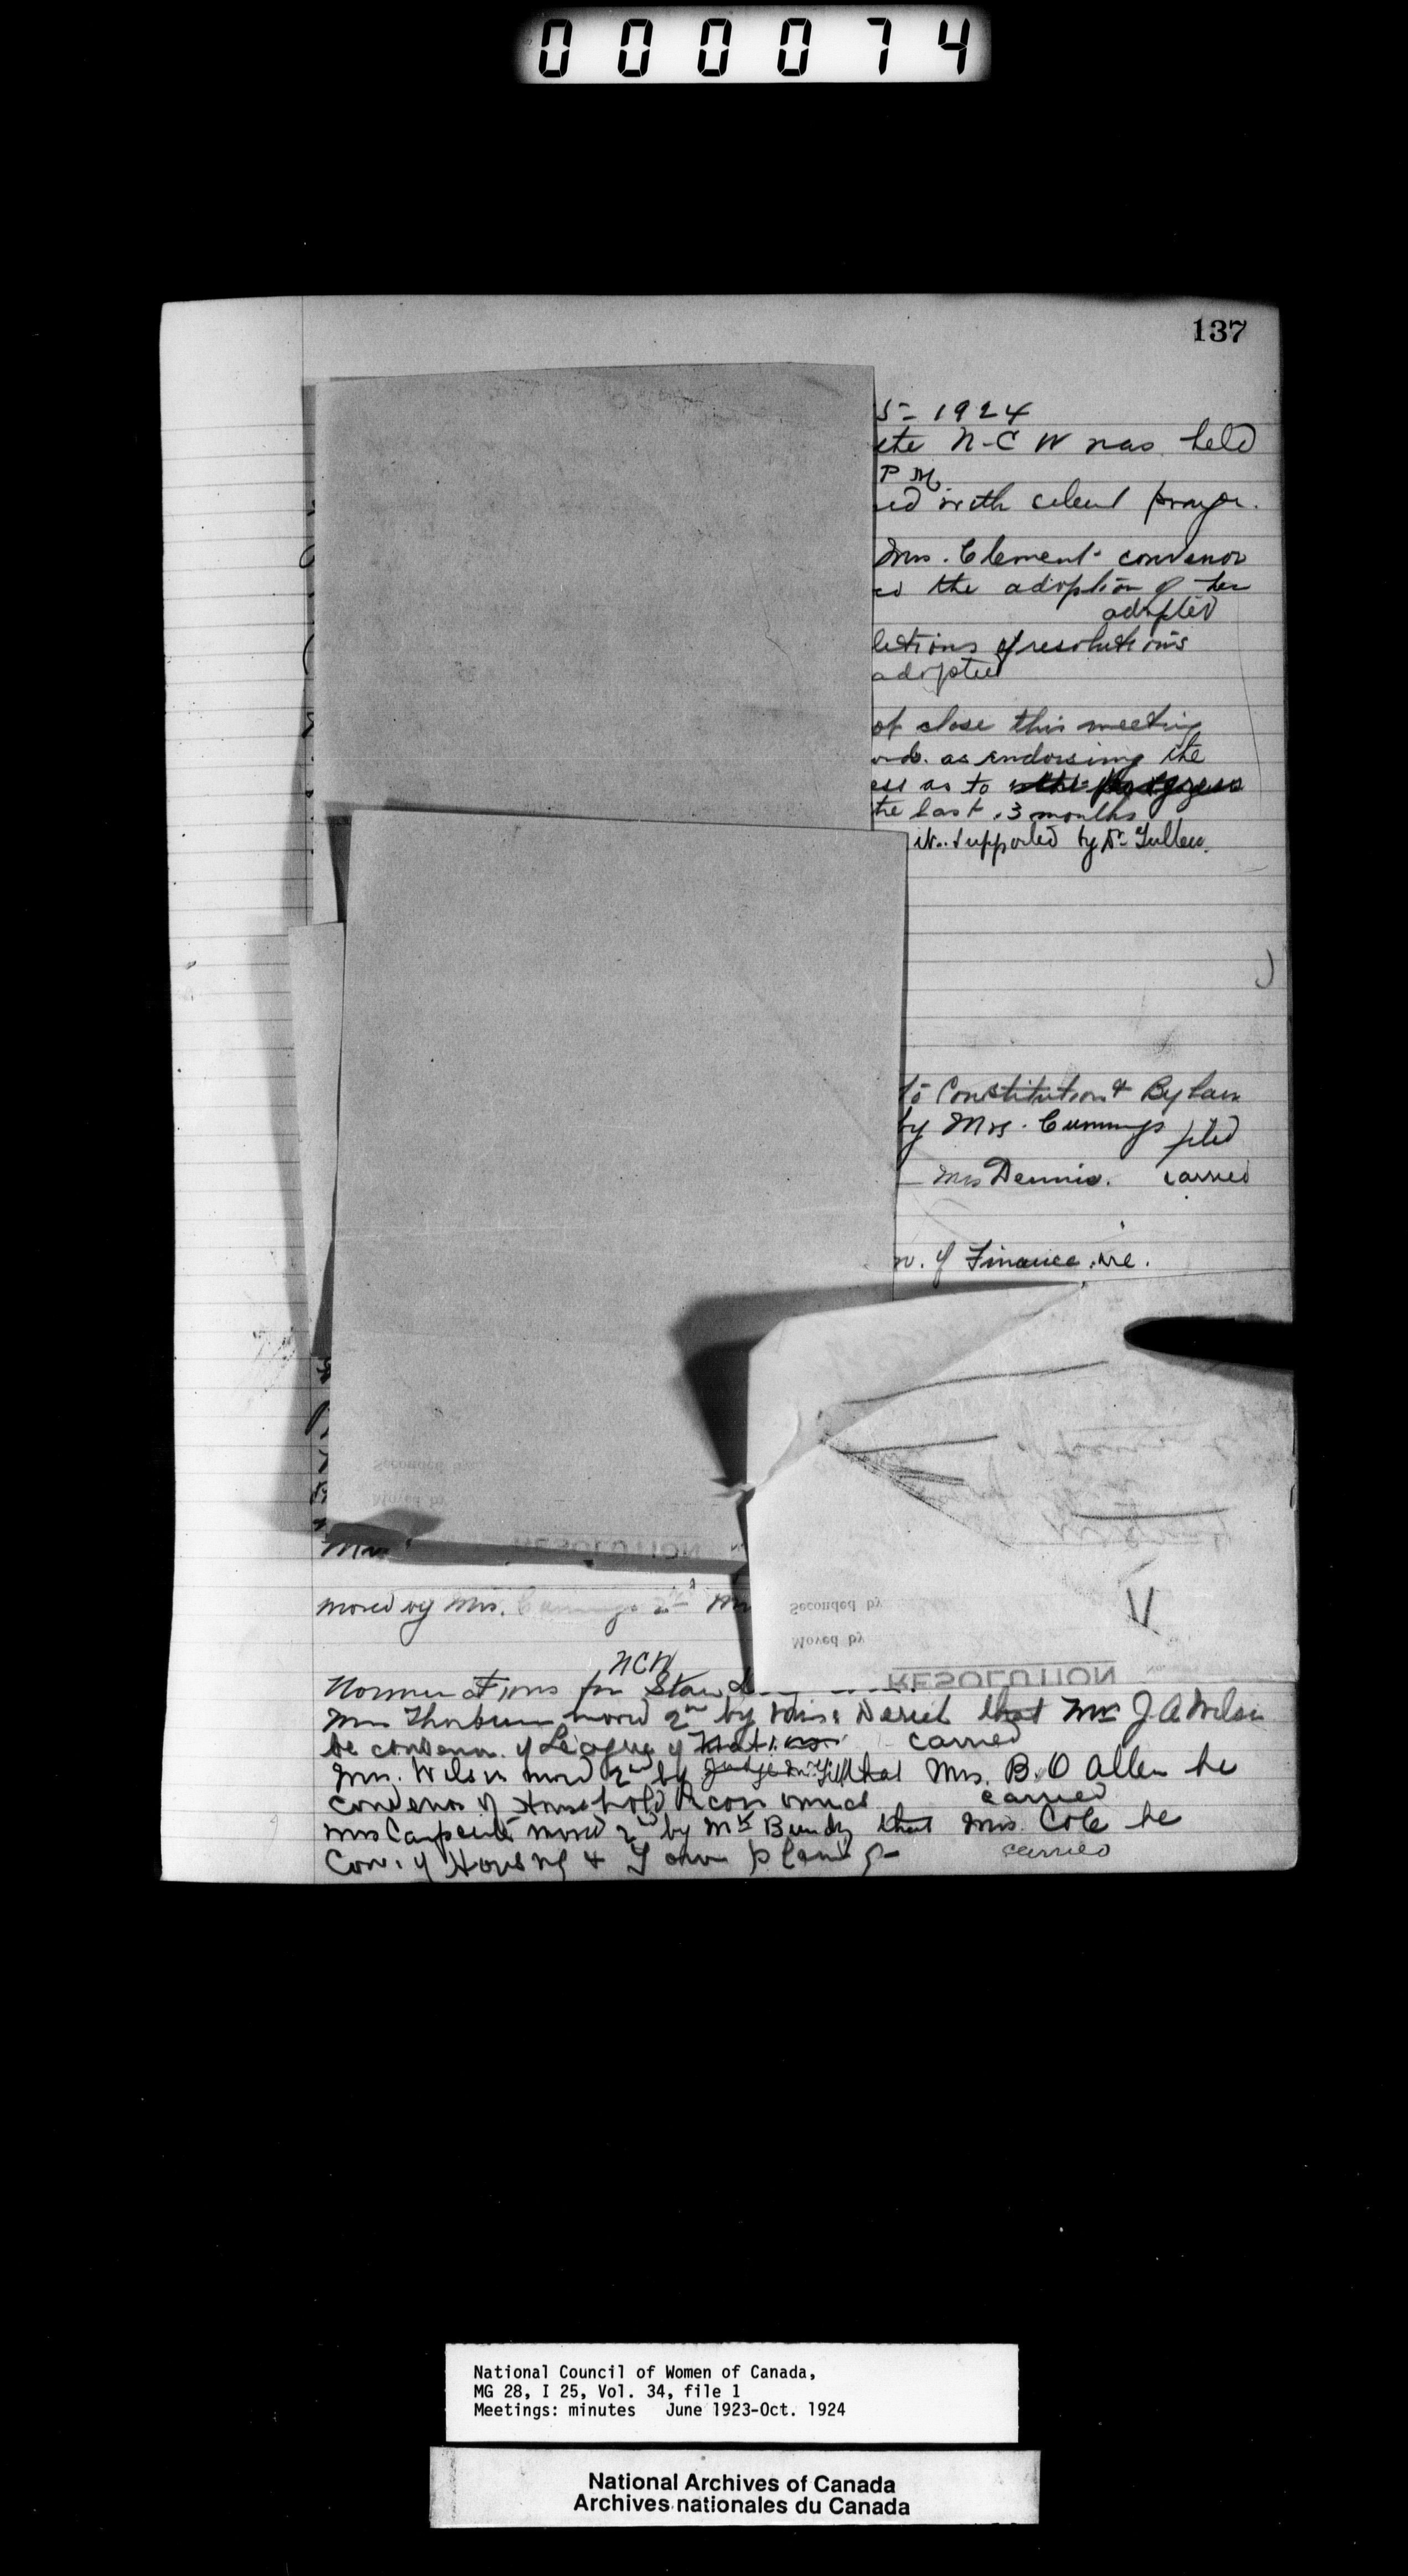 000074
137
5 - 1924
the N-C W was held
P M.
ed with silent prayer.
Mrs. Clement - convenor
ed the adoption of her
adopted
letions of resolutions
adopted
of close this meeting
as endorsing the
ess as to
the last 3 months
it. Supported by Dr
to Constitution & By laws
by Mrs. Cummings filed
Mrs Dennis. carried
n. of Finance
Seconded by
Moved by
RESOLUTION
moved by Mrs. Cummings 2nd
Seconded by
Moved by
RESOLUTION No.
NCW
Nominations for Stand
Mrs Thorburn moved 2nd by Miss that Mrs J A Wilson
be convenor of League of Nations carried
Mrs. Wilson moved 2nd by that Mrs. B. O Allen be
convenor of Household Economics carried
Mrs Carpenter moved 2nd by Mrs Bundy that Mrs. Cole be
Con. of Housing & Town planing carried
National Council of Women of Canada,
MG 28, I 25, Vol. 34, file 1
Meetings: minutes June 1923-Oct. 1924
National Archives of Canada
Archives nationales du Canada